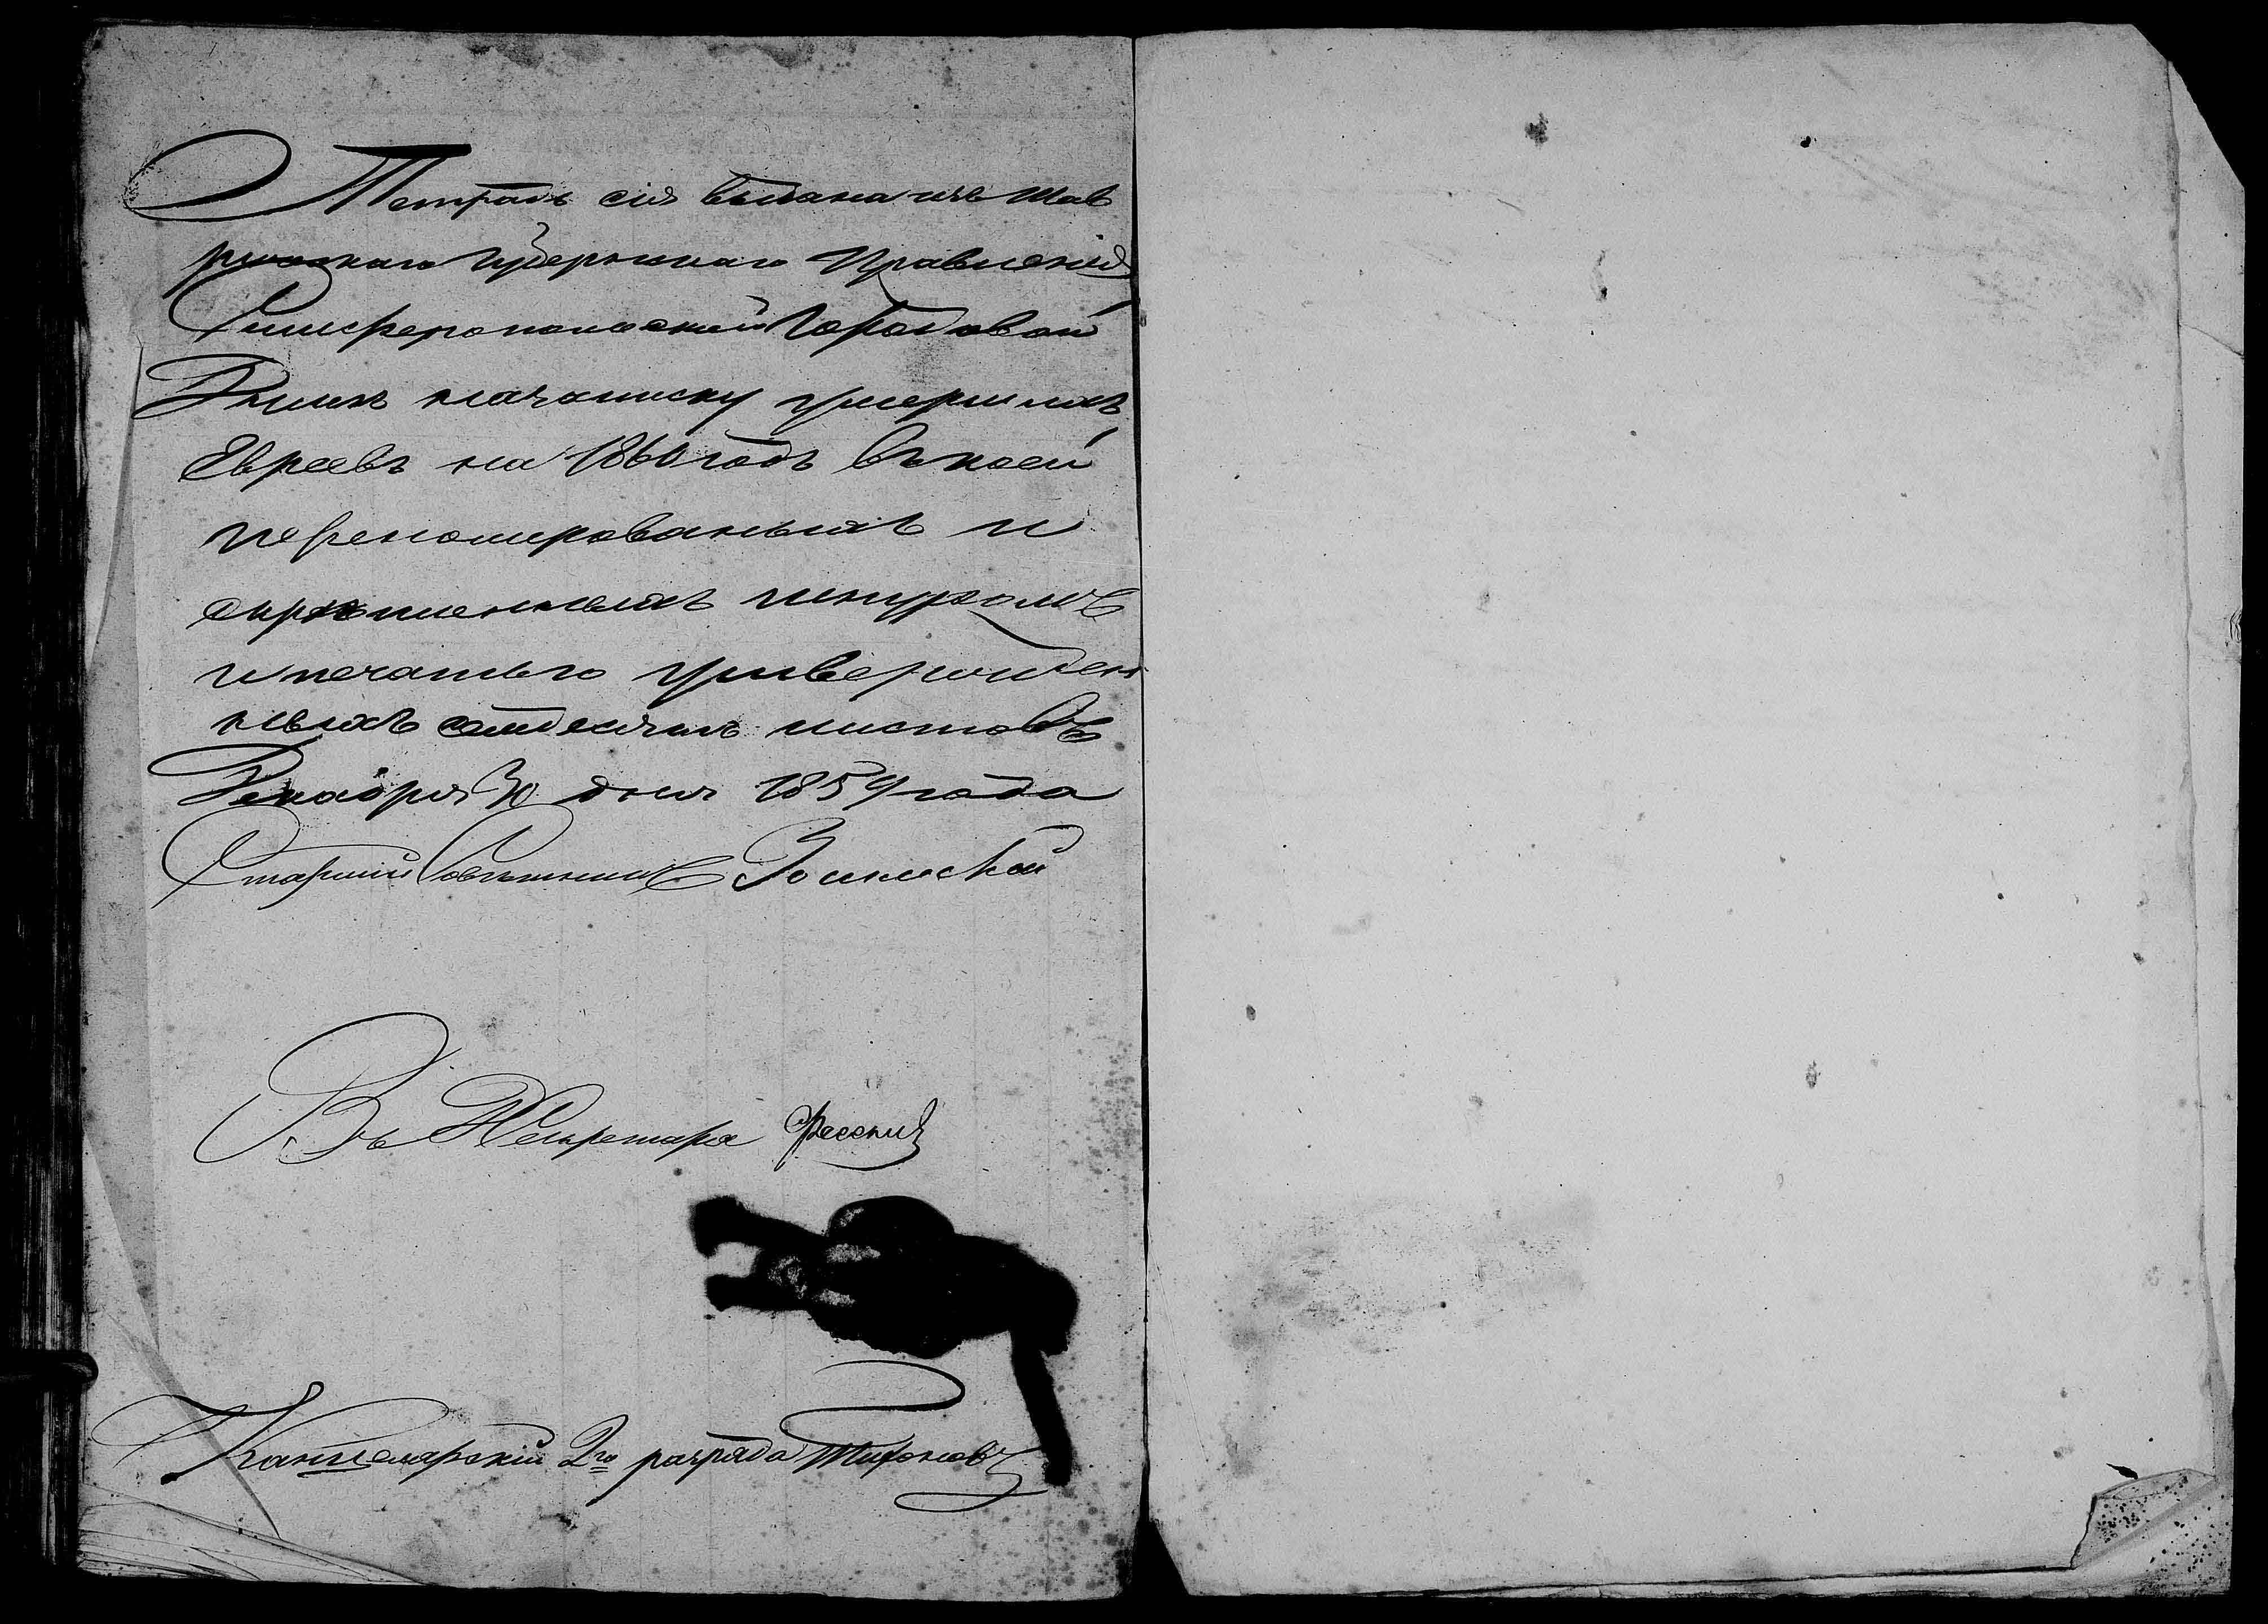 Тетрадь сія выдана изъ Тав
рическаго Губернскаго Правленія
Симферопольской Городовой
Думѣ на записку умершихъ
Евреевъ на 1860 годъ въ коей
переномерованныхъ и
скрѣпленныхъ шнуромъ
и печатью утвержден
ныхъ листовъ
Декабря 30 дня 1859 года
Старшій Совѣтникъ
Секретаря
Канцелярскій 2го разряда Тихоновъ